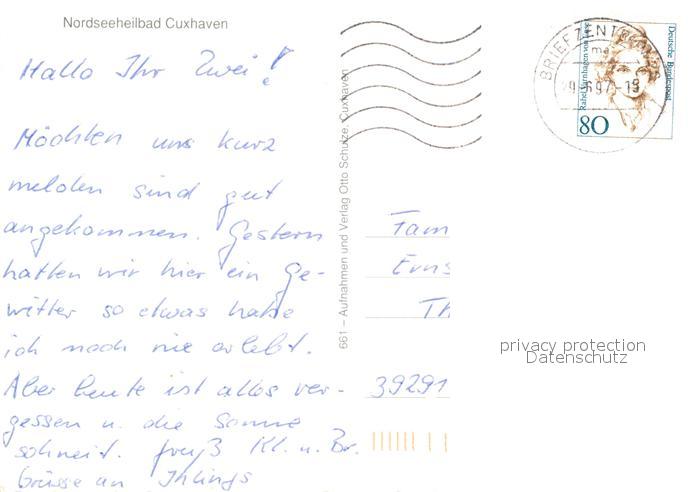 Nordseeheilbad Cuxhaven
Hallo Ihr Zwei!
Möchten uns kurz
melden sind gut
angekommen. Gestern
hatten wir hier ein Ge-
witter so etwas habe
ich noch nie erlebt.
Aber heute ist alles ver-
gessen u. die Sonne
scheint. Gruß Kl. u. Br.
Grüsse an Ihlings
661 – Aufnahmen und Verlag Otto Schulze, Cuxhaven
BRIEFZENTRUM
-9.6.97-19
Rahel Varnhagen von Ense
Deutsche Bundespost
80
Fam
Erns
Th
39291
privacy protection
Datenschutz